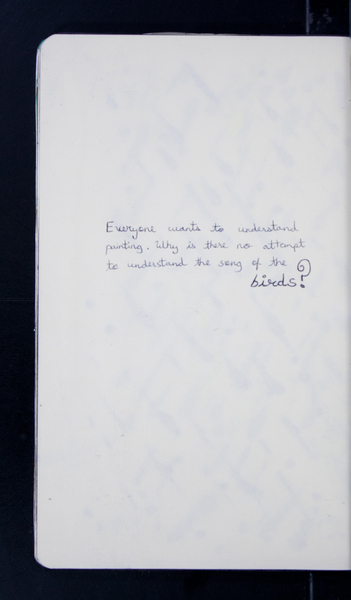 Everyone wants to understand
painting. Why is there no attempt
to understand the song of the
birds?